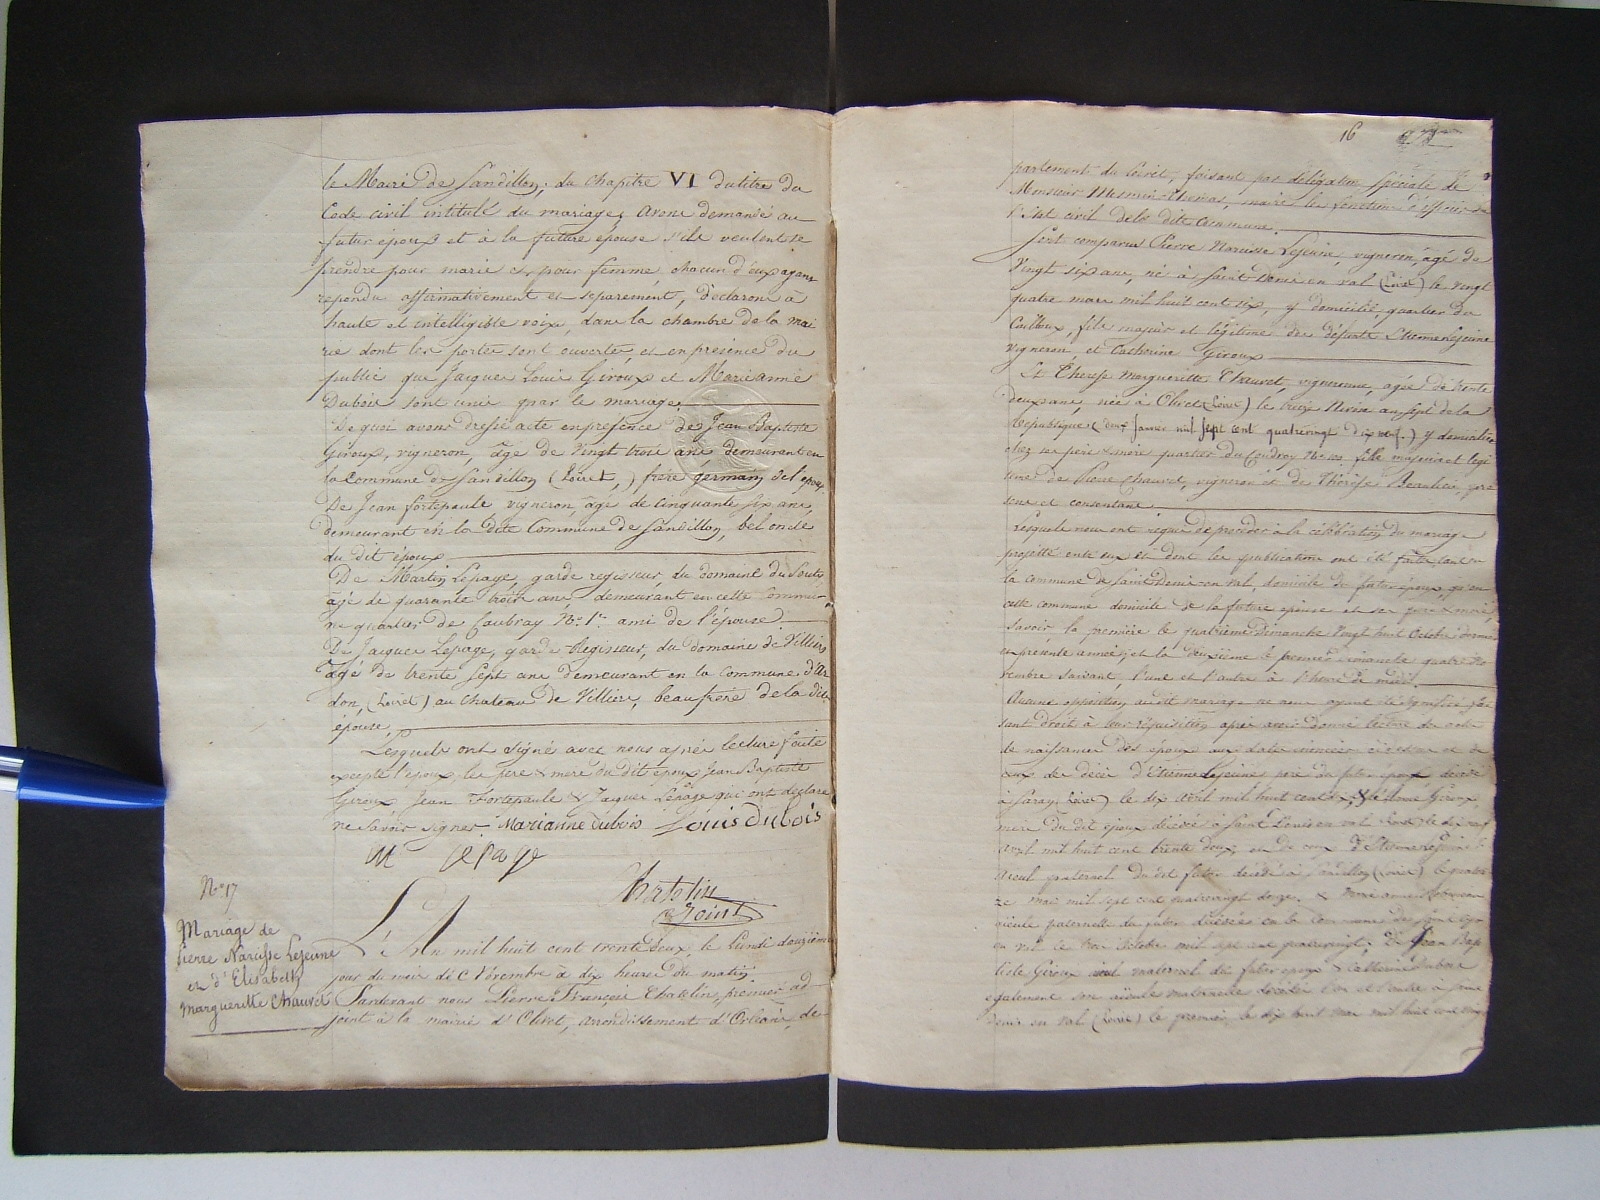 le Maire de Sandillon, du Chapitre VI du titre du
Code civil intitulé du mariage, Avons demandé au
futur époux et à la future épouse s'ils veulent se
prendre pour marie et pour femme, chacun d'eux ayant
repondu affirmativement et separement, declarons à
haute et intelligible voix, dans la chambre de la mai
rie dont les portes sont ouvertes, et en presence du
public que Jacques Louis Giroux et Marieanne
Dubois sont unis par le mariage.
De quoi avons dressé acte en présence de Jean Baptiste
Giroux, vigneron, âgé de Vingt trois ans demeurant en
la Commune de Sandillon (Loiret,) frère germain de l'époux
De Jean fortepaule vigneron, âgé de cinquante six ans,
demeurant en la dite Commune de Sandillon, bel oncle
du dit époux
De Martin Lepage, garde regisseur, du domaine du
âgé de quarante trois ans, demeurant en cette Commu-
ne quartier de Caubray No. 1er ami de l'épouse.
De Jacques Lepage, garde Regisseur, du domaine de Villiers
âgé de trente sept ans demeurant en la commune d'Ar
don, (Loiret) au Chateau de Villiers, beaufrère de la dite
épouse.
Lesquels ont signé avec nous après lecture faite
excepté l'époux, les père & mère du dit époux, Jean Baptiste
Giroux, Jean Fortepaule & Jacques Lepage qui ont déclaré
ne savoir signer. Marianne dubois Louis dubois
M Lepage
Chatelin
adjoint
No. 17
Mariage de
Pierre Narcisse Lejeune
et d'Elisabeth
Margueritte Chauvet
L'An mil huit cent trente deux, le Lundi douzième
jour du mois de Novembre à dix heures du matin
Pardevant nous Pierre François Chatelin, premier ad
joint à la mairie d'Olivet, arrondissement d'Orléans, dé
16
partement du Loiret, faisant par délégation spéciale de
Monsieur Mesmin Thomas, maire les fonctions d'officier de
l'état civil de la dite Commune.
Sont comparus Pierre Narcisse Lejeune, vigneron, âgé de
Vingt six ans, né à Saint Denis en val (Loiret) le vingt
quatre mars mil huit cent six, y domicilié, quartier du
Cailloux, fils majeur et légitime des défunts Etienne Lejeune
vigneron, et Catherine Giroux
Et Therese Margueritte Chauvet, vigneronne, agée de trente
deux ans, née à Olivet (Loiret) le treize Nivose an sept de la
République (deux Janvier mil sept cent quatrevingt dix neuf.) y domiciliée
chez ses père & mère quartier du Coudray No. fille majeure et legi
time de Pierre Chauvet, vigneron et de Thérèse Beaulieu, pre
sens et consentans.
Lesquels nous ont requis de proceder à la célébration du mariage
projetté entre eux et dont les publications ont été faites tant en
la commune de Saint Denis en val, domicile du futur époux, qu'en
cette commune domicile de la future épouse et ses père & mère,
savoir, la première le quatrième Dimanche Vingt huit Octobre dernier
présente année, et la deuxième le premier dimanche quatre No
vembre suivant, l'une et l'autre à l'heure de midi.
Aucune opposition au dit mariage ne nous ayant été signifiée, fai
sant droit à leur réquisition, après avoir donné lecture des actes
de naissances des époux aux dates énoncées ci dessus et de
ceux des décès d'Etienne Lejeune, père du futur époux, décédé
à Saray (Loiret) le dix Avril mil huit cent Giroux,
mère du dit époux décédée à Saint Denis en val
Avril mil huit cent trente deux, et de ceux d'Etienne Lejeune
aieul paternel du dit futur décédé à Sandillon (Loiret) le quator
ze mai mil sept cent quatrevingt douze, & Marie anne
aïeule paternelle du futur décédée en la Commune de
en val le trois Octobre mil sept cent quatrevingt, de Jean Bap
tiste Giroux aieul maternel du futur époux & Catherine Dubois
également son aïeule maternelle décédés l'un et l'autre à Saint
denis en val (Loiret) le premier, le dix huit mars mil huit cent